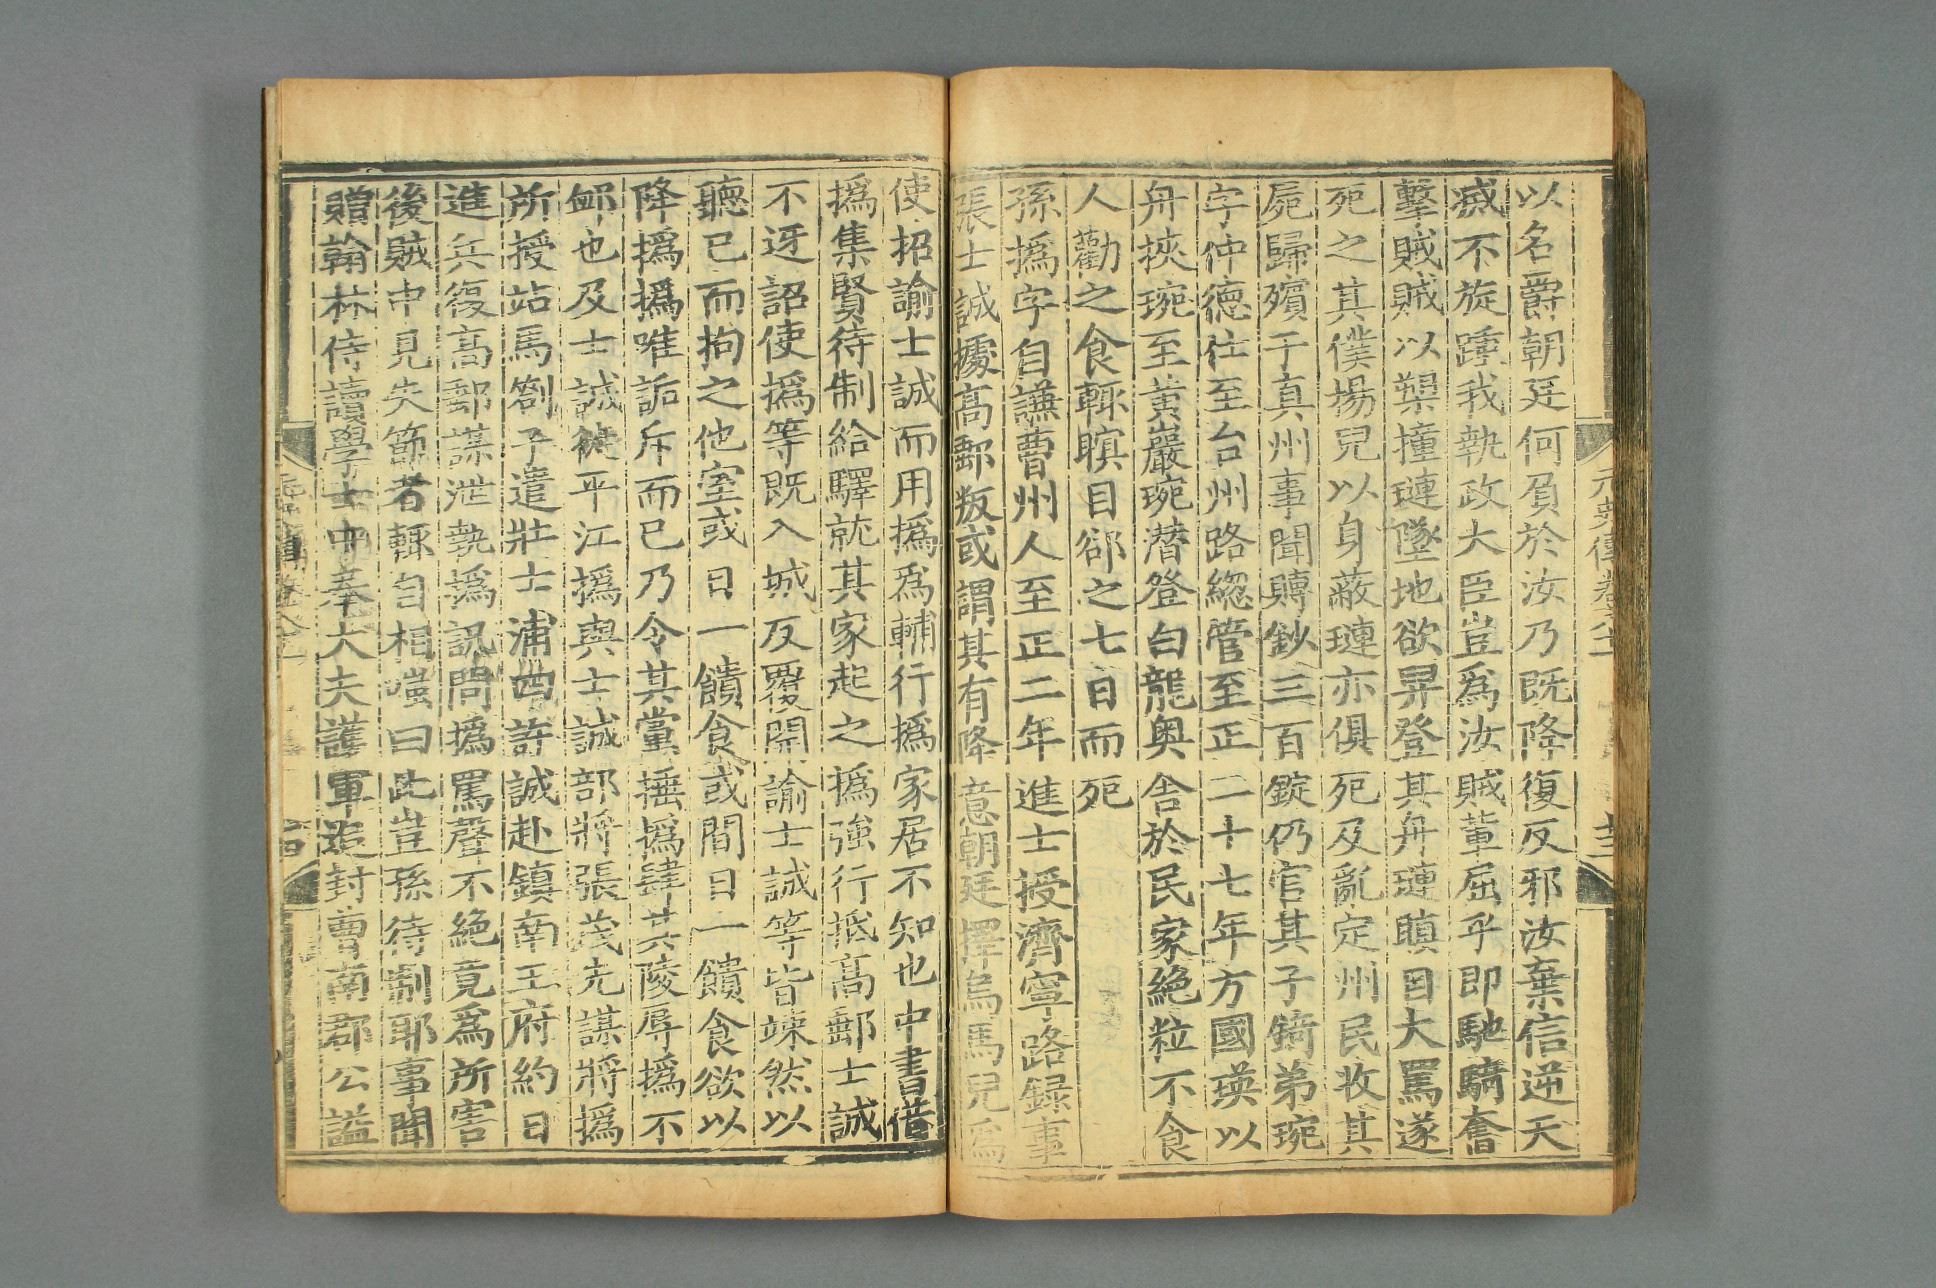 以名爵朝廷何負於汝乃既降復反邪汝棄信逆天
滅不旋踵我執政大臣豈爲汝賊輩屈乎即馳騎奮
擊賊賊以槊撞璉墜地欲舁登其舟璉瞋目大罵遂
死之其僕揚兒以身蔽璉亦俱死及亂定州民收其
屍歸殯于真州事聞賻鈔三百錠仍官其子錡弟琬
字仲德仕至台州路緫管至正二十七年方國瑛以
舟挾琬至黃巖琬潛登白龍奥舍於民家絶粒不食
人勸之食輒瞑目郤之七日而死
孫撝字自謙曹州人至正二年進士授濟寧路録事
張士誠據高郵叛或謂其有降意朝廷擇烏馬兒爲
使招諭士誠而用撝爲輔行撝家居不知也中書借
撝集賢待制給驛就其家起之撝強行抵高郵士誠
不迓詔使撝等既入城反覆開諭士誠等皆竦然以
聽已而拘之他室或日一饋食或間日一饋食欲以
降撝撝唯詬斥而已乃令其黨捶撝肆其陵辱撝不
䘏也及士誠徙平江撝與士誠部將張茂先謀將撝
所授站馬劄子遣壯士浦四許誠赴鎮南王府約日
進兵復高郵謀泄執撝訊問撝罵聲不絶竟爲所害
後賊中見失節者輒自相嗤曰此豈孫待制耶事聞
贈翰林侍讀學士中奉大夫護軍追封曹南郡公謚